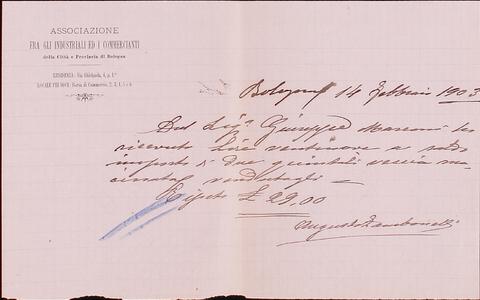 ASSOCIAZIONE
FRA GLI INDUSTRIALI ED I COMMERCIANTI
della Città e Provincia di Bologna
RESIDENZA: Via Ghirlanda, 4, p. 1°
LOCALE PEI SOCI: Borsa di Commercio,
Bologna 14 Febbraio 1903
Dal Sig. Giuseppe Marconi ho
ricevuto Lire ventinove a saldo
importo di due quintali
vendutogli
Dico £ 29.00
Augusto